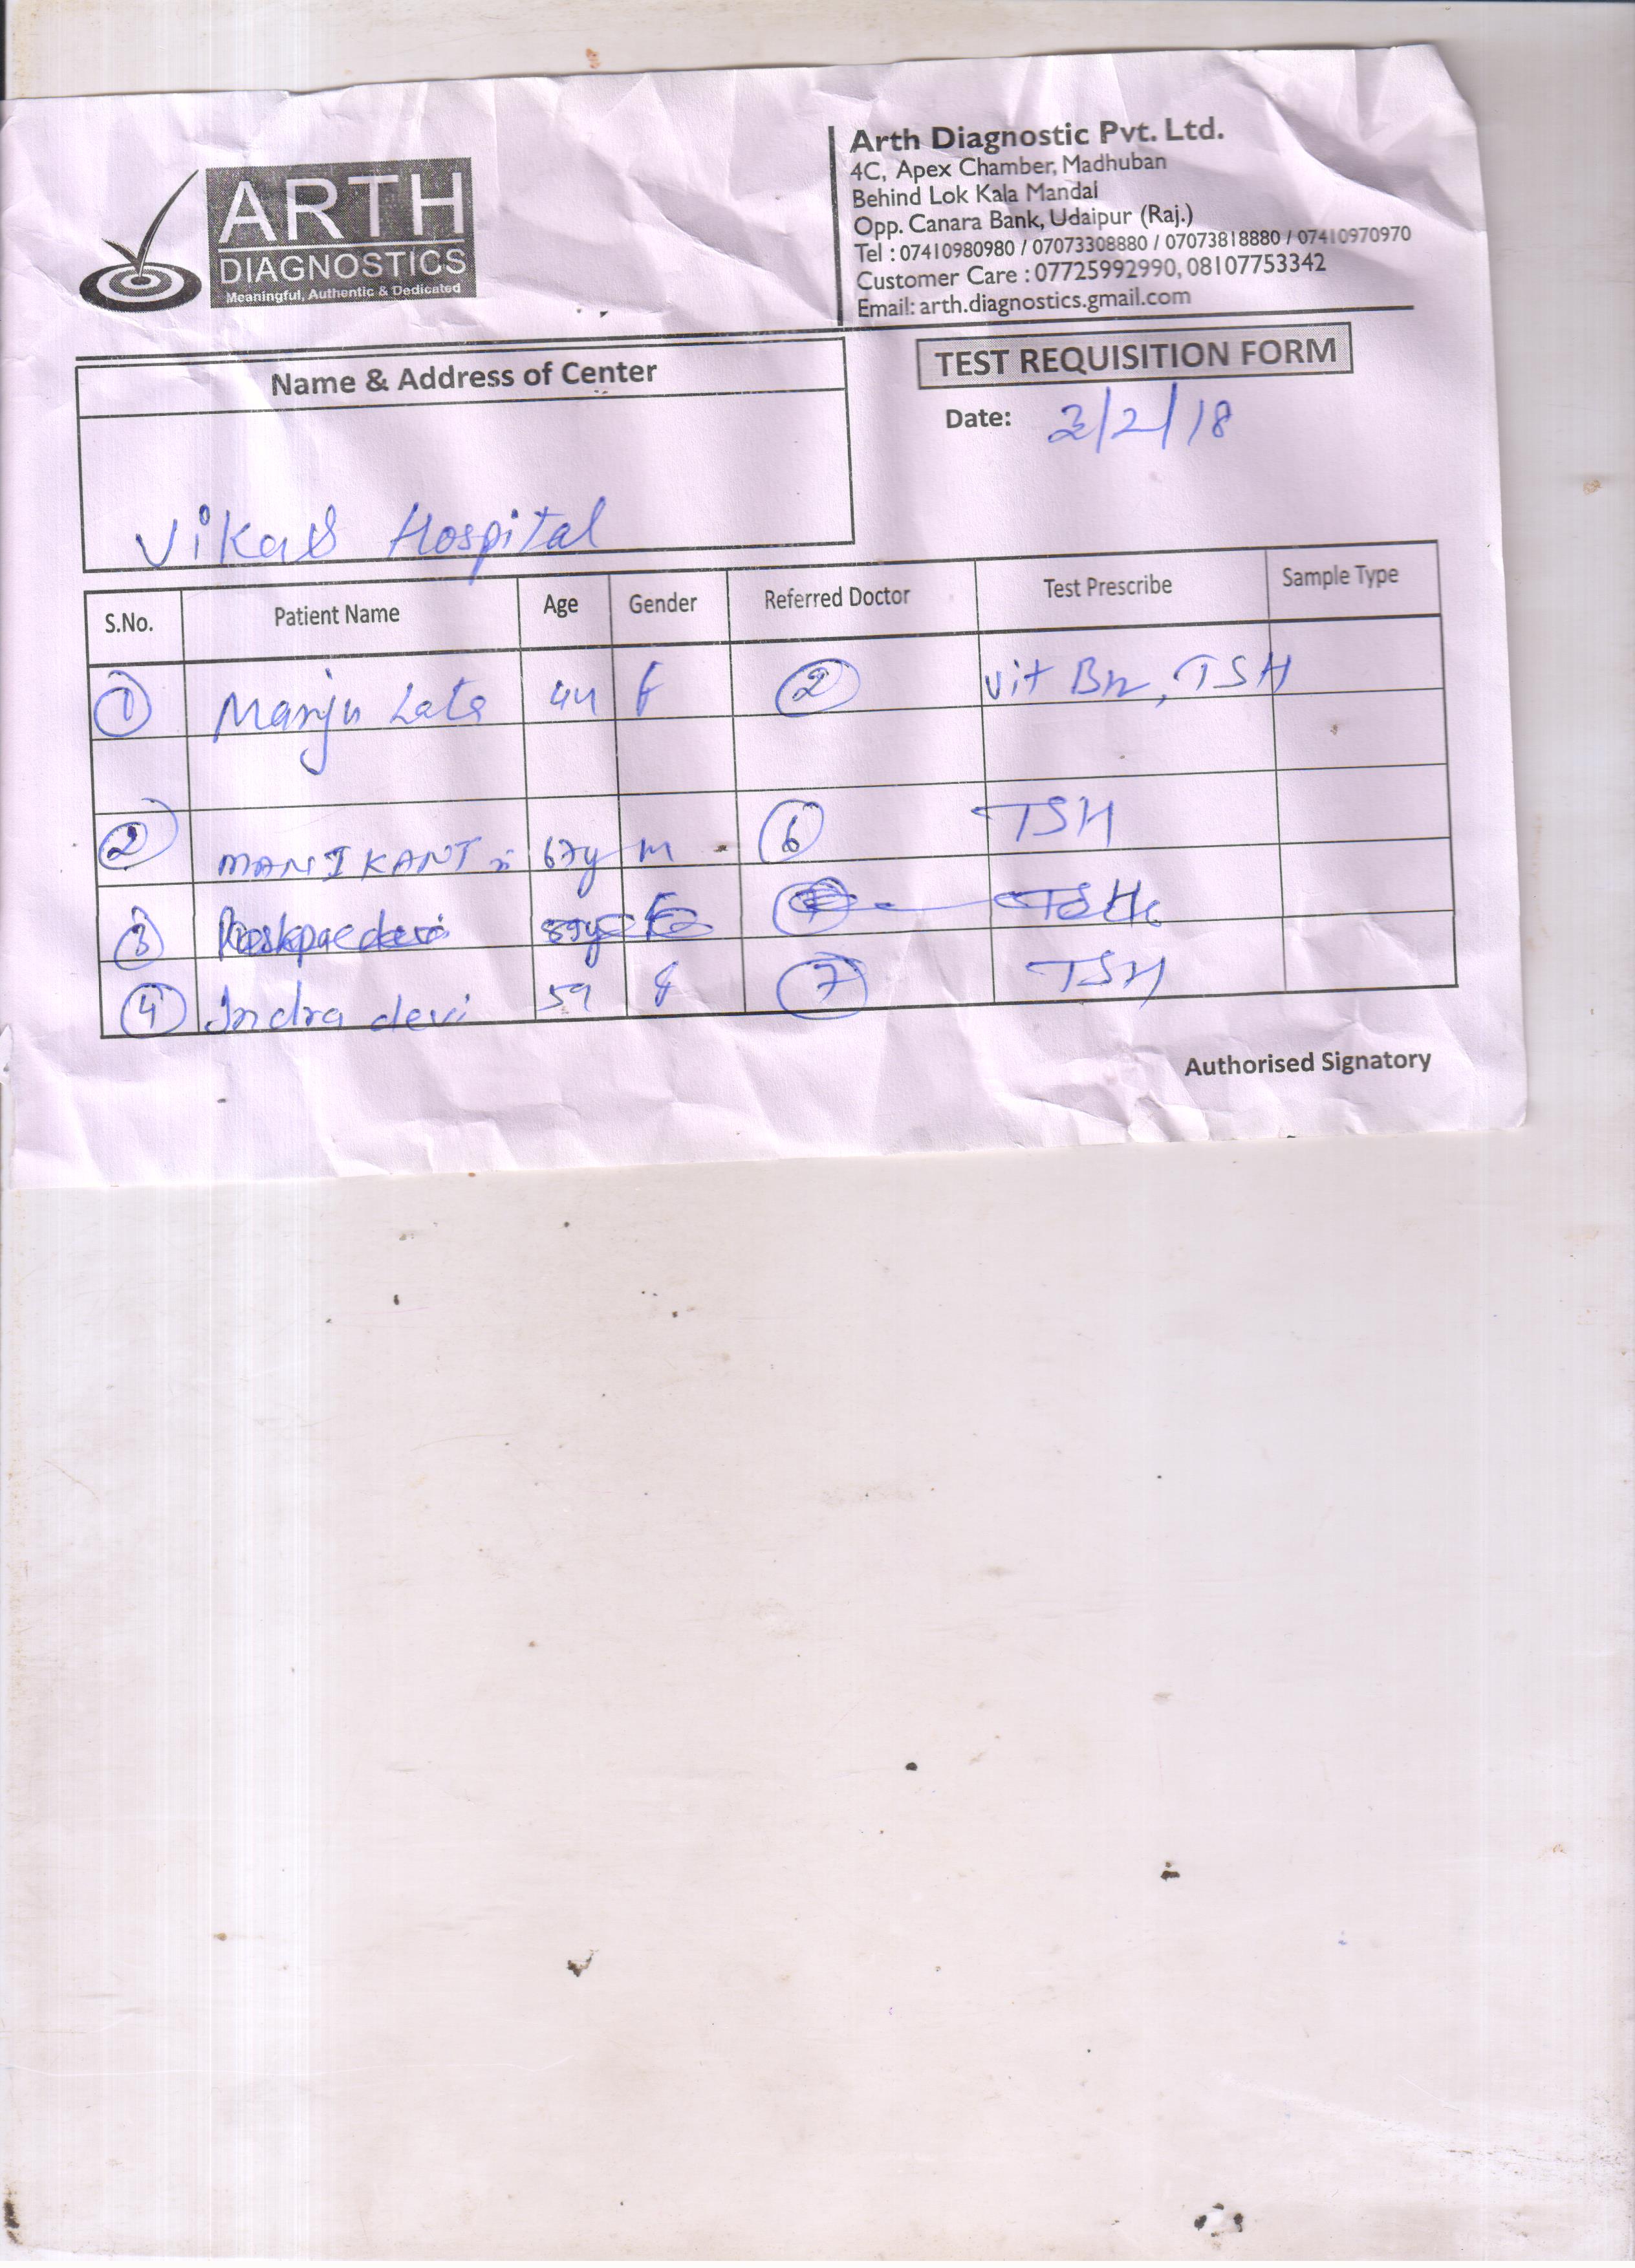 ARTH
DIAGNOSTICS
Meaningful, Authentic & Dedicated
Arth Diagnostic Pvt. Ltd.
4C, Apex Chamber, Madhuban
Behind Lok Kala Mandal
Opp. Canara Bank, Udaipur (Raj.)
Tel : 07410980980 / 07073308880 / 07073818880 / 07410970970
Customer Care : 07725992990, 08107753342
Email: arth.diagnostics.gmail.com
Name & Address of Center
TEST REQUISITION FORM
Date: 3/2/18
Vikas Hospital
S.No. Patient Name Age Gender Referred Doctor Test Prescribe Sample Type
1 Manju Lata 44 f 2 Vit B12, TSH
2 MANIKANT 67y m 6 TSH
3 devi TSH
4 Indra devi 59 f 7 TSH
Authorised Signatory